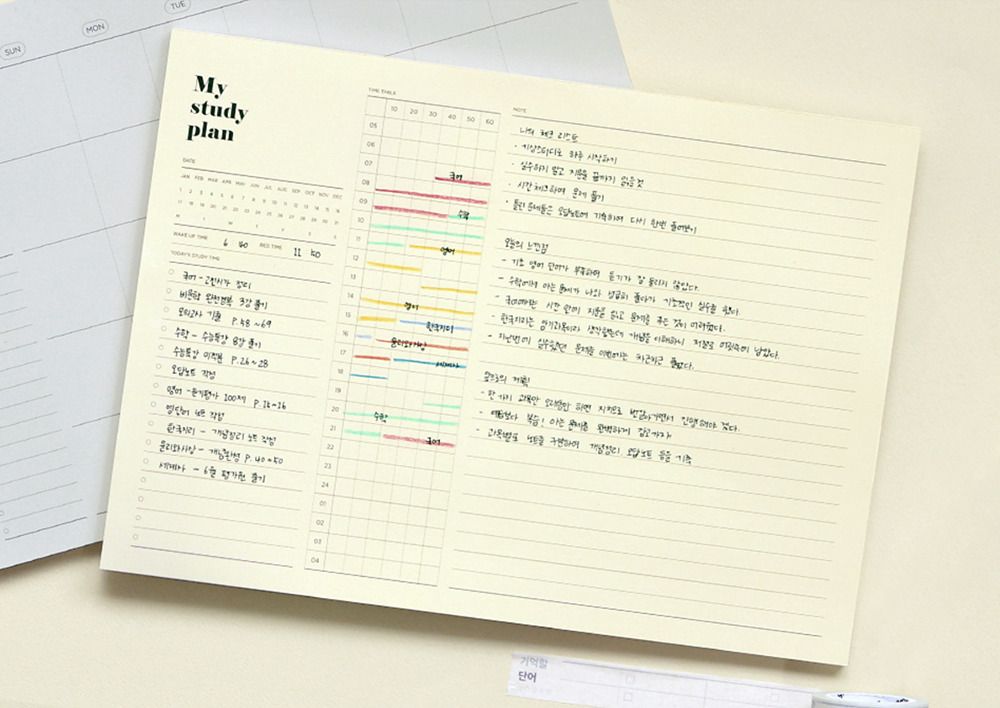 SUN
MON
TUE
My
study
plan
DATE
JAN FEB MAR APR MAY JUN JUL AUG SEP OCT NOV DEC
1 2 3 4 5 6 7 8 9 10 11 12 13 14 15 16
17 18 19 20 21 22 23 24 25 26 27 28 29 30 31
WAKE UP TIME 6 40 BED TIME 11 50
TODAY'S STUDY TIME
국어 - 고전시가 정리
비문학 완전정복 3강 풀기
모의고사 기출 P.58 ~ 69
수학 - 수능특강 8강 풀기
수능특강 미적분 P.26~28
오답노트 작성
영어 - 듣기평가 100제 P.14~16
영단어 노트 작성
한국지리 - 개념정리 노트 작성
윤리와사상 - 개념완성 P.40~50
세계사 - 6월 평가원 풀기
TIME TABLE
10 20 30 40 50 60
05
06
07
국어
08
09
수학
10
11
영어
12
13
14
영어
15
한국지리
16
윤리와사상
17
세계사
18
19
20
수학
21
국어
22
23
24
01
02
03
04
NOTE
나의 체크 리스트
· 기상스터디로 하루 시작하기
· 실수하지 말고 지문을 끝까지 읽을 것
· 시간체크하며 문제 풀기
· 틀린 문제들은 오답노트에 기록하여 다시 한번 풀어보기
오늘의 느낀점
- 기초 영어 단어가 부족하여 듣기가 잘 들리지 않았다.
- 수학에서 아는 문제가 나와 성급히 풀다가 기초적인 실수를 했다.
- 국어에서는 시간 안에 지문을 읽고 문제를 푸는 것이 어려웠다.
- 한국지리는 암기과목이라 생각했는데 개념을 이해하니 저절로 머릿속에 남았다.
- 지난번에 실수했던 문제를 이번에는 차근차근 풀었다.
앞으로의 계획
- 한 가지 과목만 오래동안 하면 지치므로 번갈아가면서 진행해야 겠다.
- 예습보다 복습! 아는 문제를 완벽하게 잡고가자
- 과목별로 노트를 구분하여 개념정리 오답노트 등을 기록
기억할
단어